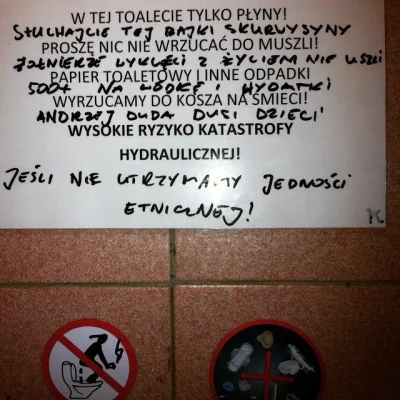 W TEJ TOALECIE TYLKO PŁYNY!
SŁUCHAJCIE TEJ BAJKI SKURWYSYNY
PROSZĘ NIC NIE WRZUCAĆ DO MUSZLI!
ŻOŁNIERZE WYKLĘCI Z ŻYCIEM NIE USZLI
PAPIER TOALETOWY I INNE ODPADKI
500+ NA WÓDKĘ I WYDATKI
WYRZUCAMY DO KOSZA NA ŚMIECI!
ANDRZEJ DUDA DUSI DZIECI
WYSOKIE RYZYKO KATASTROFY
HYDRAULICZNEJ!
JEŚLI NIE UTRZYMAMY JEDNOŚCI
ETNICZNEJ!